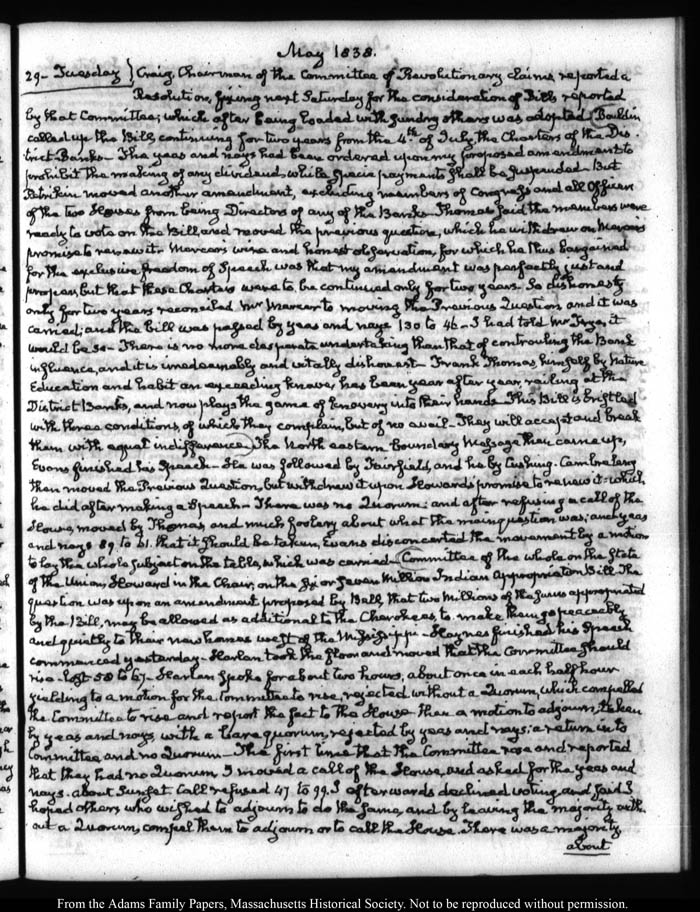 May 1838.
29. Tuesday } Craig, Chairman of the Committee of Revolutionary claims, reported a
Resolution, fixing next Saturday for the consideration of Bills reported
by that Committee; which after being loaded with sundry others was adopted. (Bouldin
called up the Bill, continuing for two years from the 4th of July the Charters of the Dis-
trict Banks. The yeas and nays had been ordered upon my proposed amendment to
prohibit the making of any dividend, while specie payments shall be suspended. But
Petrikin moved another amendment, excluding members of Congress and all Officers
of the two Houses from being Directors of any of the Banks. Thomas said the members were
ready to vote on the Bill, and moved the previous question, which he withdrew on Mercer's
promise to renew it. Mercer's wise and honest observation, for which he thus bargained
for the exclusive freedom of Speech was that my amendment was perfectly just and
proper, but that these Charters were to be continued only for two years. So dishonesty
only for two years reconciled Mr Mercer to moving the Previous Question and it was
carried; and the bill was passed by yeas and nays 130 to 46. I had told Mr it
would be so. There is no more desperate undertaking than that of controuling the Bank
influence, and it is and vitally dishonest. Frank Thomas himself by Nature
Education and habit an exceeding knave, has been year after year, railing at the
District Banks, and now plays the game of knavery into their hands. This Bill is bristled
with three conditions, of which they complain, but of no avail. They will accept and break
them with equal indifference) The North eastern boundary Message then came up,
Evans finished his Speech. He was followed by Fairfield, and he by Cushing. Cambreleng
then moved the Previous Question, but withdrew it upon Howard's promise to renew it: which
he did after making a Speech. There was no Quorum: and after refusing a call of the
House, moved by Thomas, and much foolery about what the main question was, and yeas
and nays 89 to 61. that it should be taken, Evans disconcerted the movement by a motion
to lay the whole subject on the table, which was carried. (Committee of the whole on the State
of the Union, Howard in the Chair, on the six or seven Million Indian Appropriation Bill. The
question was upon an amendment proposed by Bell, that two Millions of the sums appropriated
by the Bill, may be allowed as additional to the Cherokees, to make them go peaceably
and quietly to their new homes west of the Missisippi. Haynes finished his Speech
commenced yesterday. Harlan took the floor and moved that the Committee should
rise. lost 58 to 67. Harlan spoke for about two hours, about once in each half hour
yielding to a motion for the Committee to rise, rejected without a Quorum, which compelled
the Committee to rise and report the fact to the House. then a motion to adjourn, taken
by yeas and nays, with a bare quorum, rejected by yeas and nays; a return into
Committee, and no Quorum. The first time that the Committee rose and reported
that they had no Quorum, I moved a call of the House, and asked for the yeas and
nays. about Sunset. Call refused 47 to 99. I afterwards declined voting, and said I
hoped others, who wished to adjourn to do the same, and by leaving the majority with-
out a Quorum, compel them to adjourn or to call the House. There was a majority,
about
From the Adams Family Papers, Massachusetts Historical Society. Not to be reproduced without permission.